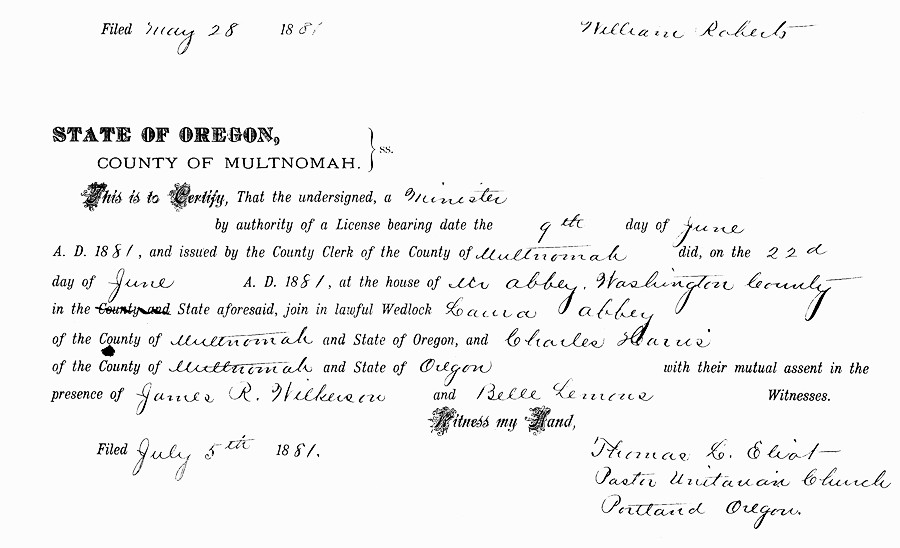 Filed May 28 1881 William Roberts
STATE OF OREGON,
COUNTY OF MULTNOMAH. } ss.
This is to Certify, That the undersigned, a Minister
by authority of a License bearing date the 9th day of June
A. D. 1881, and issued by the County Clerk of the County of Multnomah did, on the 22d
day of June A. D. 1881, at the house of Mr Abbey, Washington County
in the County and State aforesaid, join in lawful Wedlock Laura Abbey
of the County of Multnomah and State of Oregon, and Charles Harris
of the County of Multnomah and State of Oregon with their mutual assent in the
presence of James R. Wilkerson and Belle Lemons Witnesses.
Witness my Hand,
Filed July 5th 1881. Thomas L. Eliot
Pastor Unitarian Church
Portland Oregon.